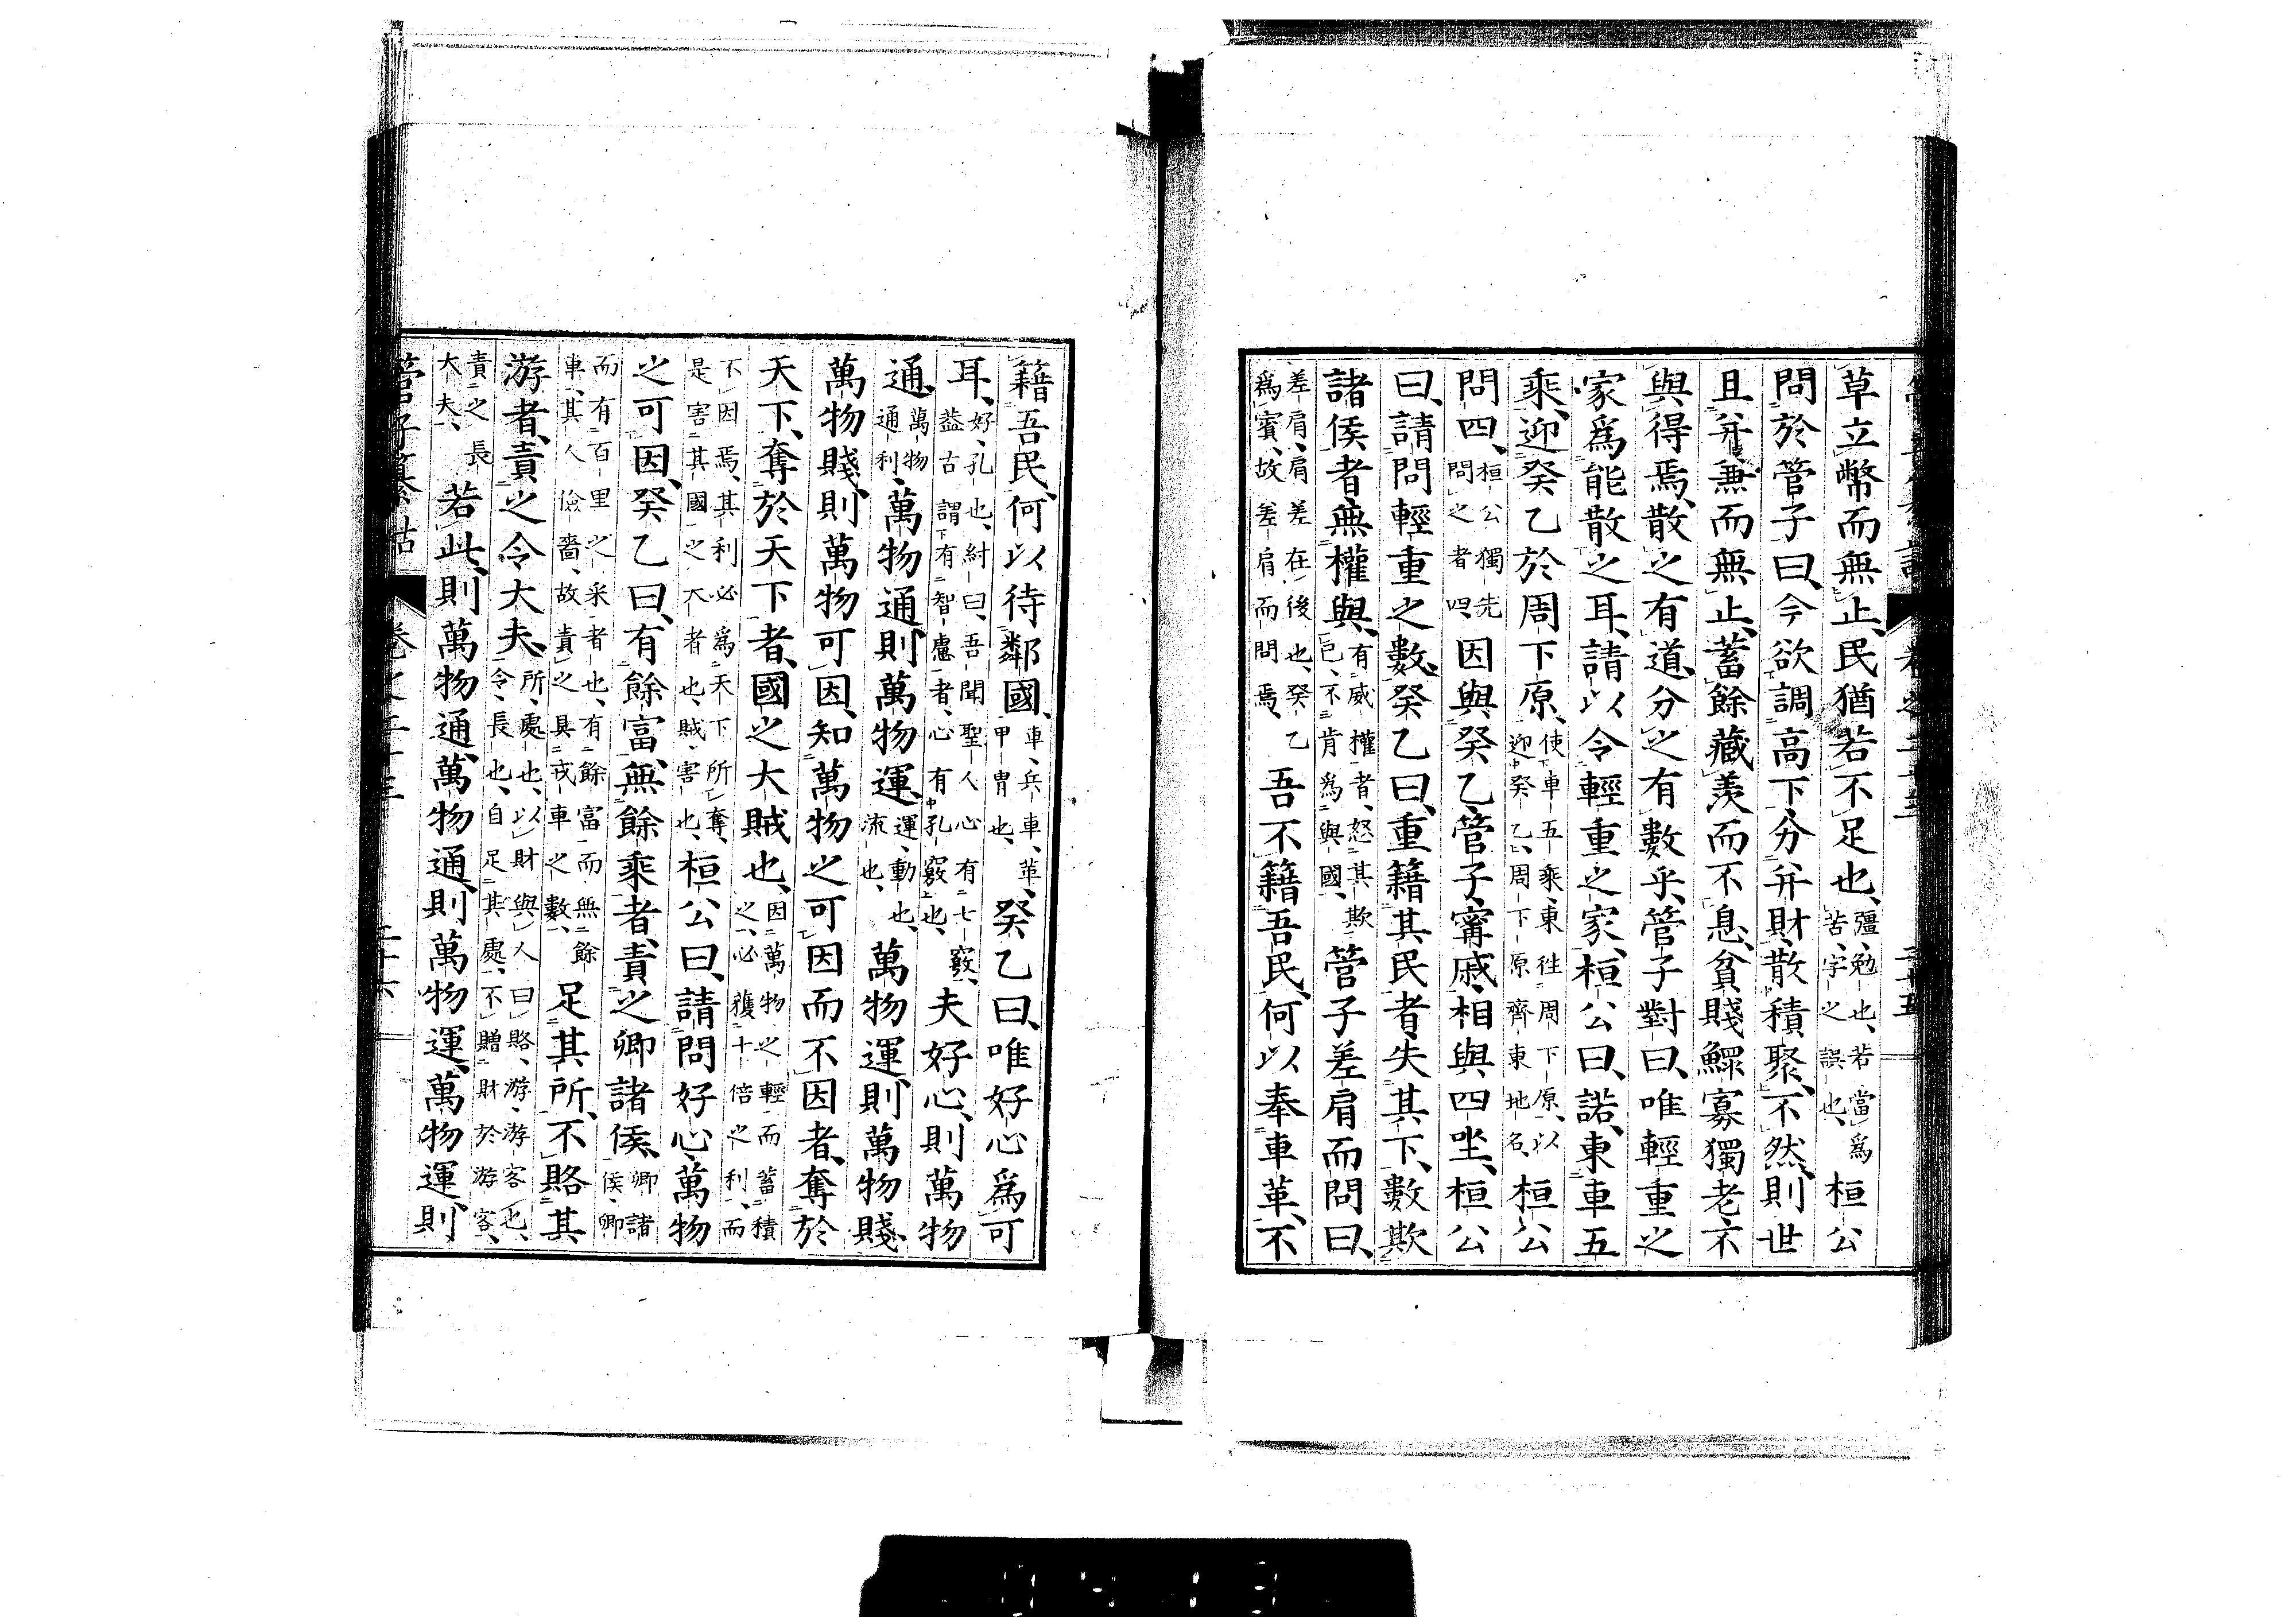 草立幣而無止、民猶若不足也、彊、勉也、若當爲苦、字之誤也、桓公
問於管子曰、今欲調高下、分幷財、散積聚、不然、則世
且幷兼而無止、蓄餘藏羨而不息、貧賤鰥寡獨老不
與得焉、散之有道、分之有數乎、管子對曰、唯輕重之
家爲能散之耳、請以令輕重之家、桓公曰、諾、東車五
乘、迎癸乙於周下原、使車五乘、東往周下原、以迎癸乙、周下原齊東地名、桓公
問四、桓公獨先問之者四、因與癸乙管子甯戚、相與四坐、桓公
曰、請問輕重之數、癸乙曰、重籍其民者失其下、數欺
諸侯者無權與、有威權者、怒其欺己、不肯爲與國、管子差肩而問曰、
差肩、肩差在後也、癸乙爲賓、故差肩而問焉、吾不籍吾民、何以奉車革、不
籍吾民、何以待鄰國、車、兵車、革、甲冑也、癸乙曰、唯好心爲可
耳、好、孔也、紂曰、吾聞聖人心有七竅、蓋古謂有智慮者、心有孔竅也、夫好心、則萬物
通、萬物通利、萬物通則萬物運、運、動也、流也、萬物運則萬物賤、
萬物賤、則萬物可因、知萬物之可因而不因者、奪於
天下、奪於天下者、國之大賊也、因萬物之輕而蓄積之、必獲十倍之利、而
不因焉、其利必爲天下所奪、是害其國之大者也、賊、害也、桓公曰、請問好心萬物
之可因、癸乙曰、有餘富、無餘乘者、責之卿諸侯、卿諸侯、卿
而有百里之采者也、有餘富而無餘車、其人儉嗇、故責之具戎車之數、足其所、不賂其
游者、責之令大夫、所、處也、以財與人曰賂、游、游客也、令、長也、自足其處、不贈財於游客、
責之長大夫、若此、則萬物通、萬物通、則萬物運、萬物運、則
管子纂詁　卷之二十三